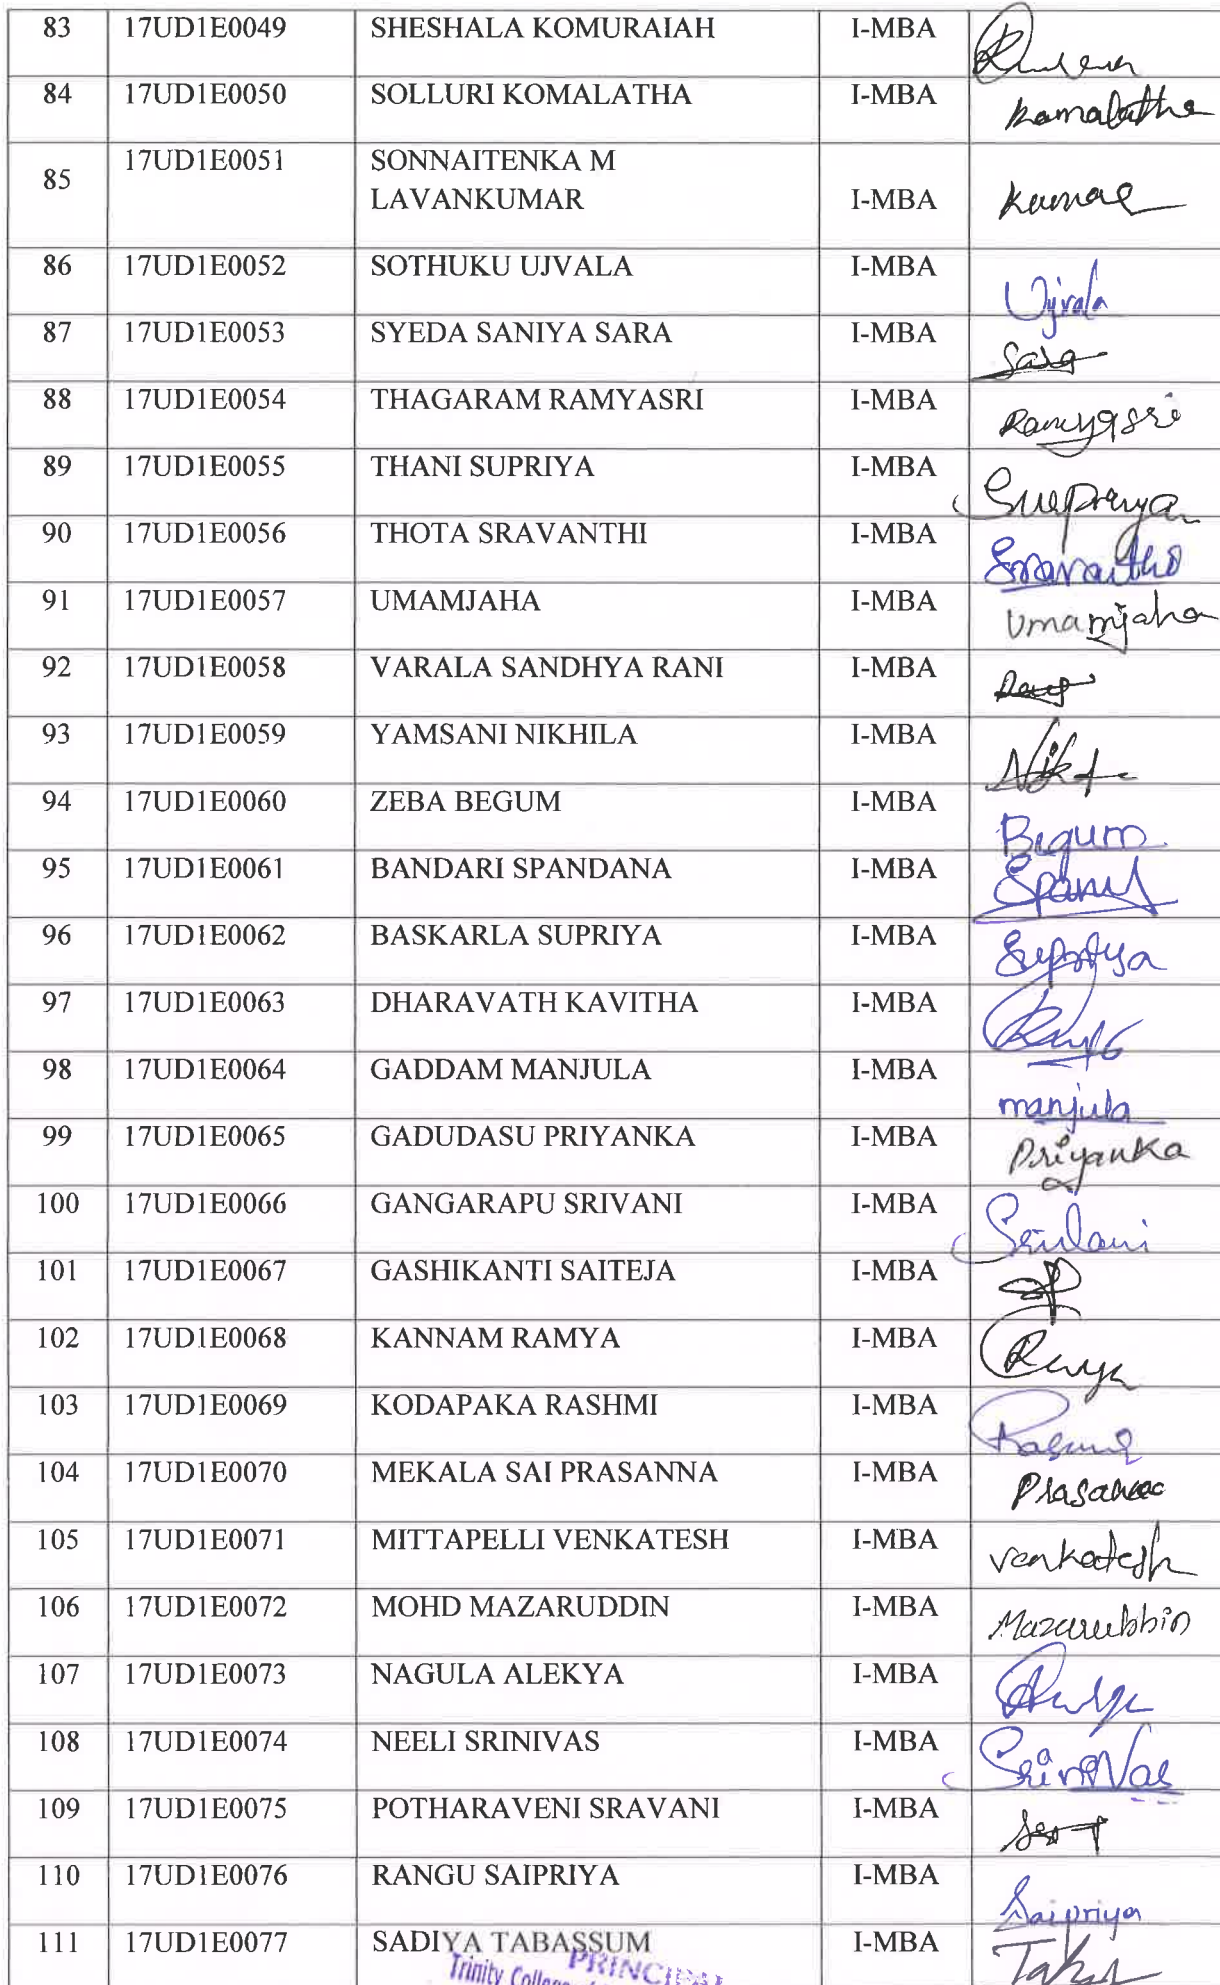 83 17UD1E0049 SHESHALA KOMURAIAH I-MBA
84 17UD1E0050 SOLLURI KOMALATHA I-MBA Komalatha
85 17UD1E0051 SONNAITENKA M
LAVANKUMAR I-MBA Kumar
86 17UD1E0052 SOTHUKU UJVALA I-MBA Ujvala
87 17UD1E0053 SYEDA SANIYA SARA I-MBA Sara
88 17UD1E0054 THAGARAM RAMYASRI I-MBA Ramyasri
89 17UD1E0055 THANI SUPRIYA I-MBA Supriya
90 17UD1E0056 THOTA SRAVANTHI I-MBA
91 17UD1E0057 UMAMJAHA I-MBA Umamjaha
92 17UD1E0058 VARALA SANDHYA RANI I-MBA
93 17UD1E0059 YAMSANI NIKHILA I-MBA
94 17UD1E0060 ZEBA BEGUM I-MBA Begum
95 17UD1E0061 BANDARI SPANDANA I-MBA
96 17UD1E0062 BASKARLA SUPRIYA I-MBA Supriya
97 17UD1E0063 DHARAVATH KAVITHA I-MBA
98 17UD1E0064 GADDAM MANJULA I-MBA manjula
99 17UD1E0065 GADUDASU PRIYANKA I-MBA Priyanka
100 17UD1E0066 GANGARAPU SRIVANI I-MBA
101 17UD1E0067 GASHIKANTI SAITEJA I-MBA
102 17UD1E0068 KANNAM RAMYA I-MBA
103 17UD1E0069 KODAPAKA RASHMI I-MBA
104 17UD1E0070 MEKALA SAI PRASANNA I-MBA
105 17UD1E0071 MITTAPELLI VENKATESH I-MBA Venkatesh
106 17UD1E0072 MOHD MAZARUDDIN I-MBA
107 17UD1E0073 NAGULA ALEKYA I-MBA
108 17UD1E0074 NEELI SRINIVAS I-MBA SriniVas
109 17UD1E0075 POTHARAVENI SRAVANI I-MBA
110 17UD1E0076 RANGU SAIPRIYA I-MBA Saipriya
111 17UD1E0077 SADIYA TABASSUM I-MBA
PRINCIPAL
Trinity